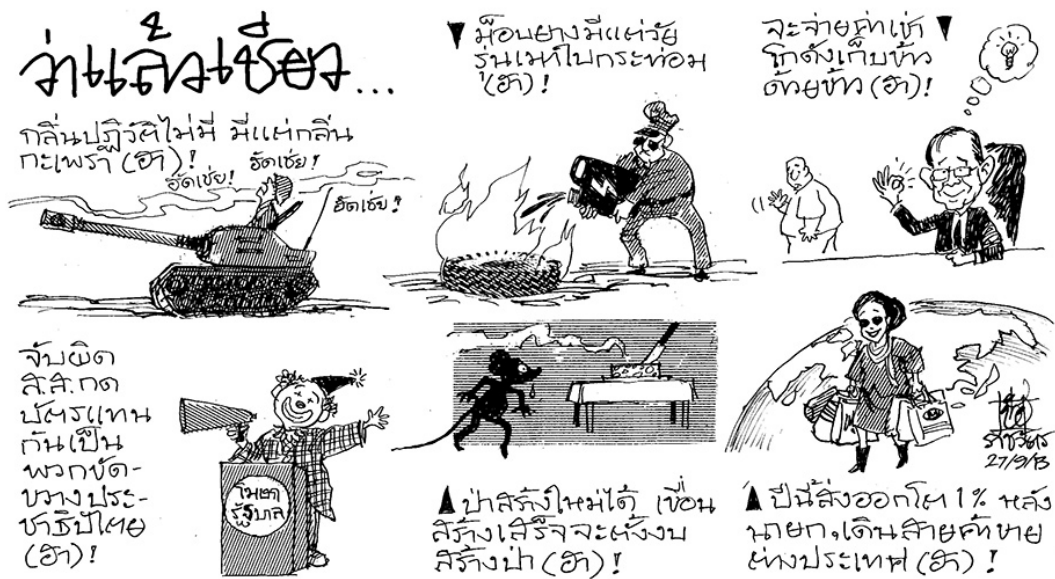 ว่าแล้วเชียว...
กลิ่นปฏิวัติไม่มี มีแต่กลิ่น
กะเพรา (ฮา)!
ฮัดเช่ย!
ฮัดเช่ย!
ฮัดเช่ย!
ม็อบยางมีแต่วัย
รุ่นเมาใบกระท่อม
(ฮา)!
จะจ่ายค่าเช่า
โกดังเก็บข้าว
ด้วยข้าว (ฮา)!
จับผิด
ส.ส.กด
บัตรแทน
กันเป็น
พวกขัด-
ขวางประ-
ชาธิปไตย
(ฮา)!
โฆษก
รัฐบาล
ป่าสร้างใหม่ได้ เขื่อน
สร้างเสร็จจะตั้งงบ
สร้างป่า (ฮา)!
ราชวัตร
27/9/13
ปีนี้ส่งออกโต 1% หลัง
นายกฯเดินสายค้าขาย
ต่างประเทศ (ฮา)!